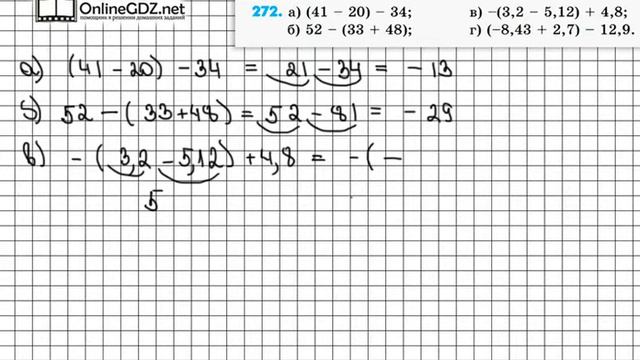 OnlineGDZ.net
помощник в решении домашних заданий
272. а) (41 − 20) − 34; в) −(3,2 − 5,12) + 4,8;
б) 52 − (33 + 48); г) (−8,43 + 2,7) − 12,9.
а) (41 − 20) − 34 = 21 − 34 = − 13
б) 52 − ( 33 + 48) = 52 − 81 = − 29
в) − (3,2 − 5,12) + 4,8 = − ( −
5